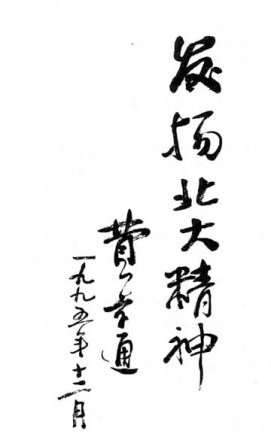 发扬北大精神
费孝通
一九九五年十二月